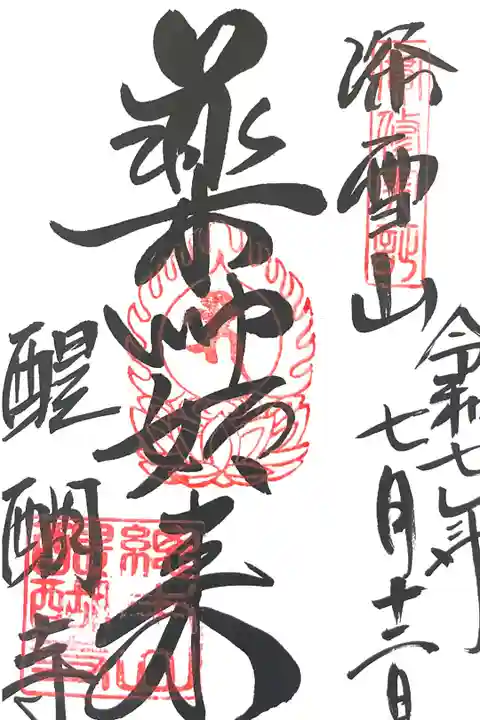 深雪山
令和七年
七月十三日
薬師如来
醍醐寺